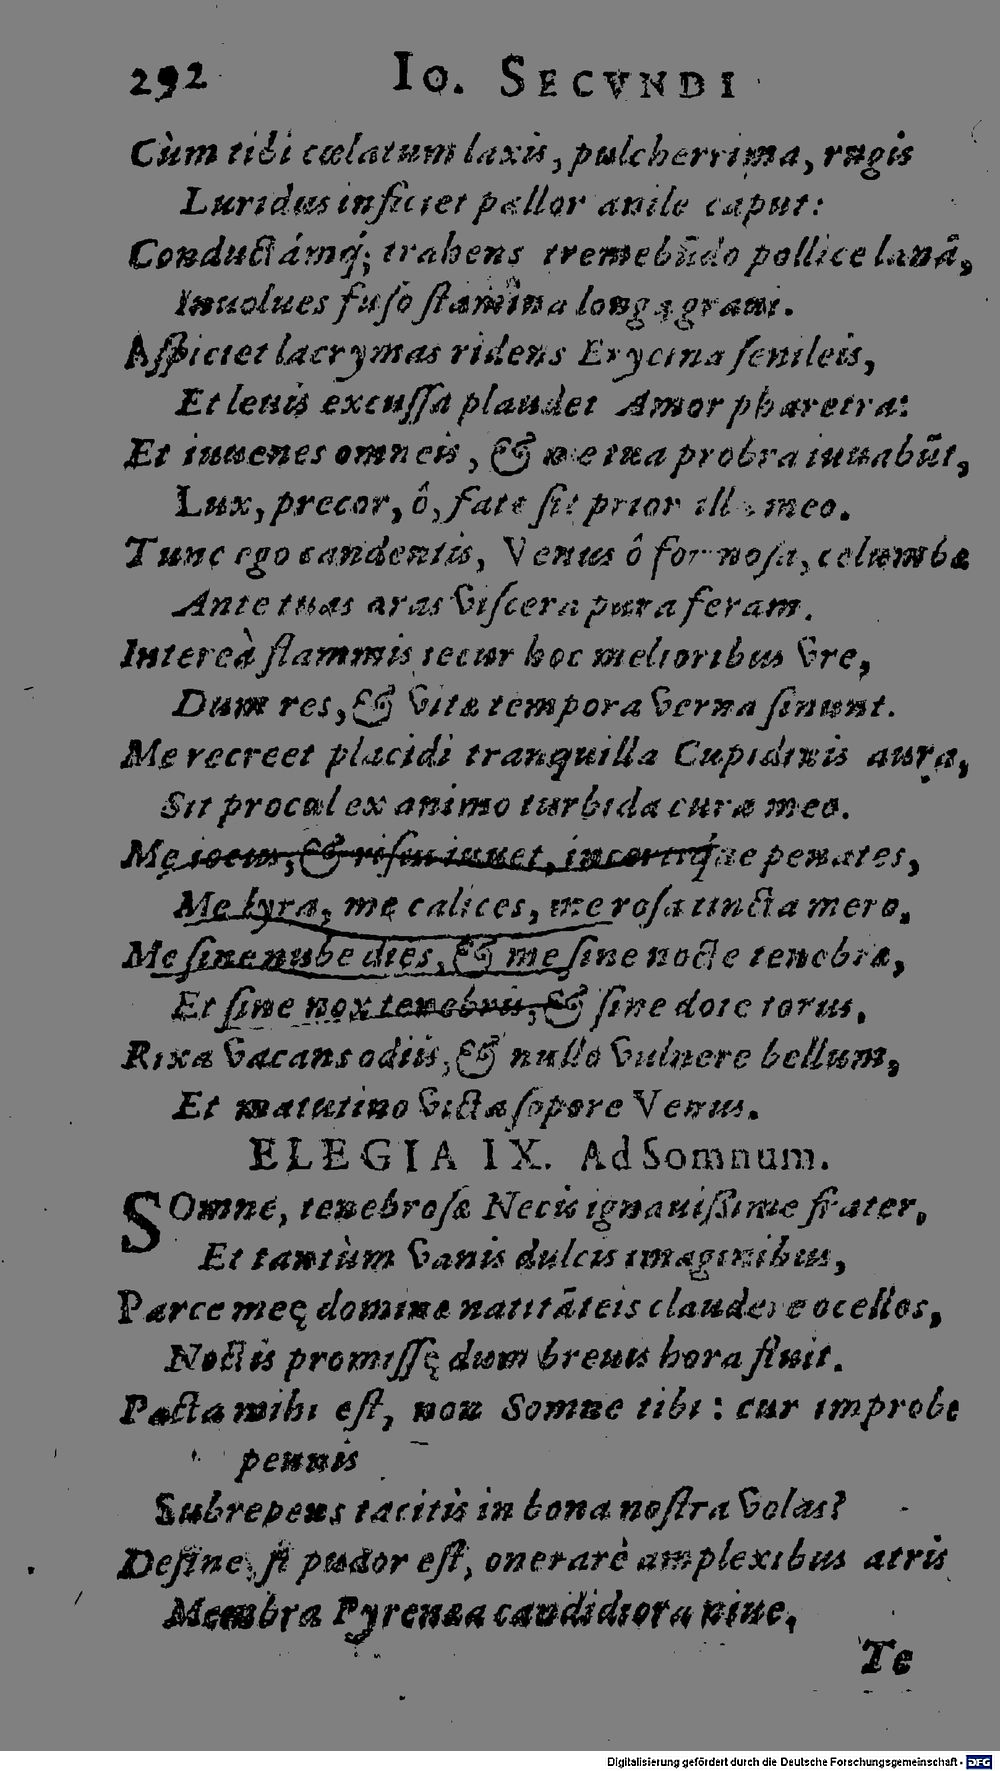 292 Io. SECVNDI
Cùm tibi cœlatum laxis, pulcherrima, rugis
Luridus inficiet pallor anile caput:
Conductámq́; trahens tremebūdo pollice lanā,
Inuolues fuso stamina longa graui.
Aspiciet lacrymas ridens Erycina senileis,
Et leuis excussa plaudet Amor pharetra:
Et iuuenes omneis, & me tua probra iuuabūt,
Lux, precor, ô, fato sit prior illa meo.
Tunc ego candentis, Venus ô formosa, columbæ
Ante tuas aras viscera pura feram.
Intereà flammis iecur hoc melioribus vre,
Dum res, & vitæ tempora verna sinunt.
Me recreet placidi tranquilla Cupidinis aura,
Sit procul ex animo turbida cura meo.
Me iocus, & risus iuuet, incertiq́ue penates,
Me lyra, me calices, me rosa tincta mero.
Me sine nube dies, & me sine nocte tenebræ,
Et sine nox tenebris, & sine dote torus.
Rixa vacans odiis, & nullo vulnere bellum,
Et matutino victa sopore Venus.
ELEGIA IX. Ad Somnum.
SOmne, tenebrosæ Necis ignauissime frater,
Et tantùm vanis dulcis imaginibus,
Parce meę dominæ natitāteis claudere ocellos,
Noctis promissę dum breuis hora fluit.
Pacta mihi est, non Somne tibi: cur improbe
pennis
Subrepens tacitis in bona nostra volas?
Desine, si pudor est, onerarè amplexibus atris
Membra Pyrenæa candidiora niue,
Te
Digitalisierung gefördert durch die Deutsche Forschungsgemeinschaft - DFG